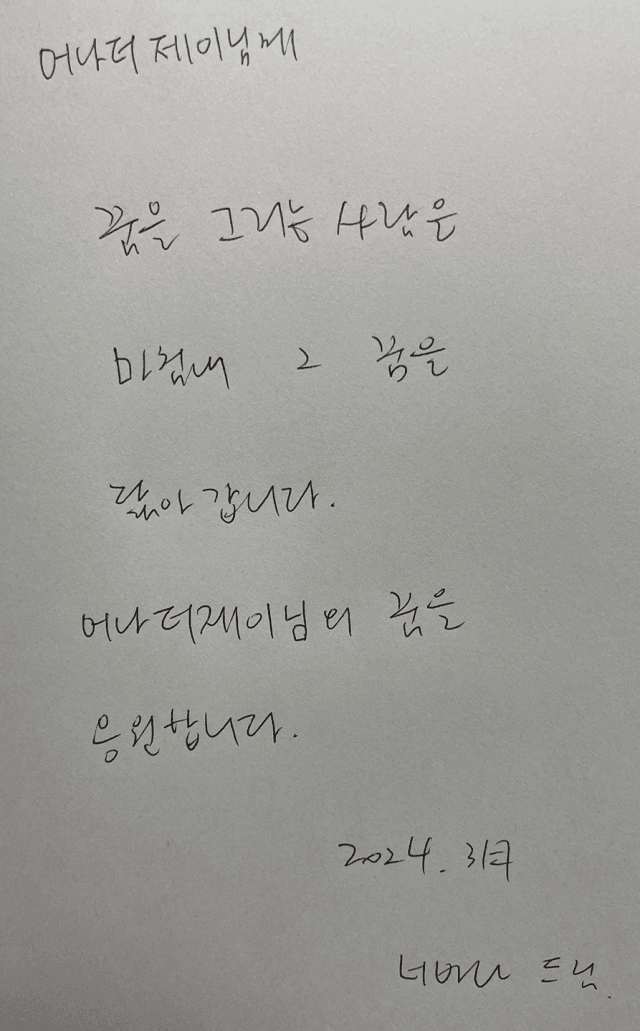 어나더 제이님께
꿈을 그리는 사람은
마침내 그 꿈을
닮아 갑니다.
어나더제이님의 꿈을
응원합니다.
2024. 3月
드림.